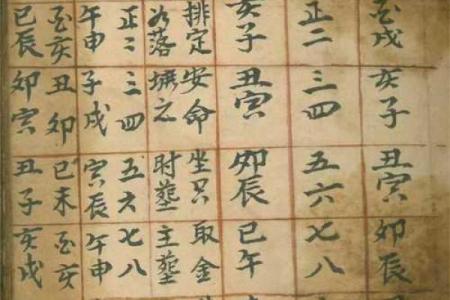 酉戌亥子丑寅卯辰
正二三四五六七八
亥子丑寅卯辰巳午
排定安命坐只取金
落壙之財塟主塟
正二三四五六七八
午申子戌寅辰午申
酉亥丑卯巳未酉亥
巳辰卯寅丑子亥戌